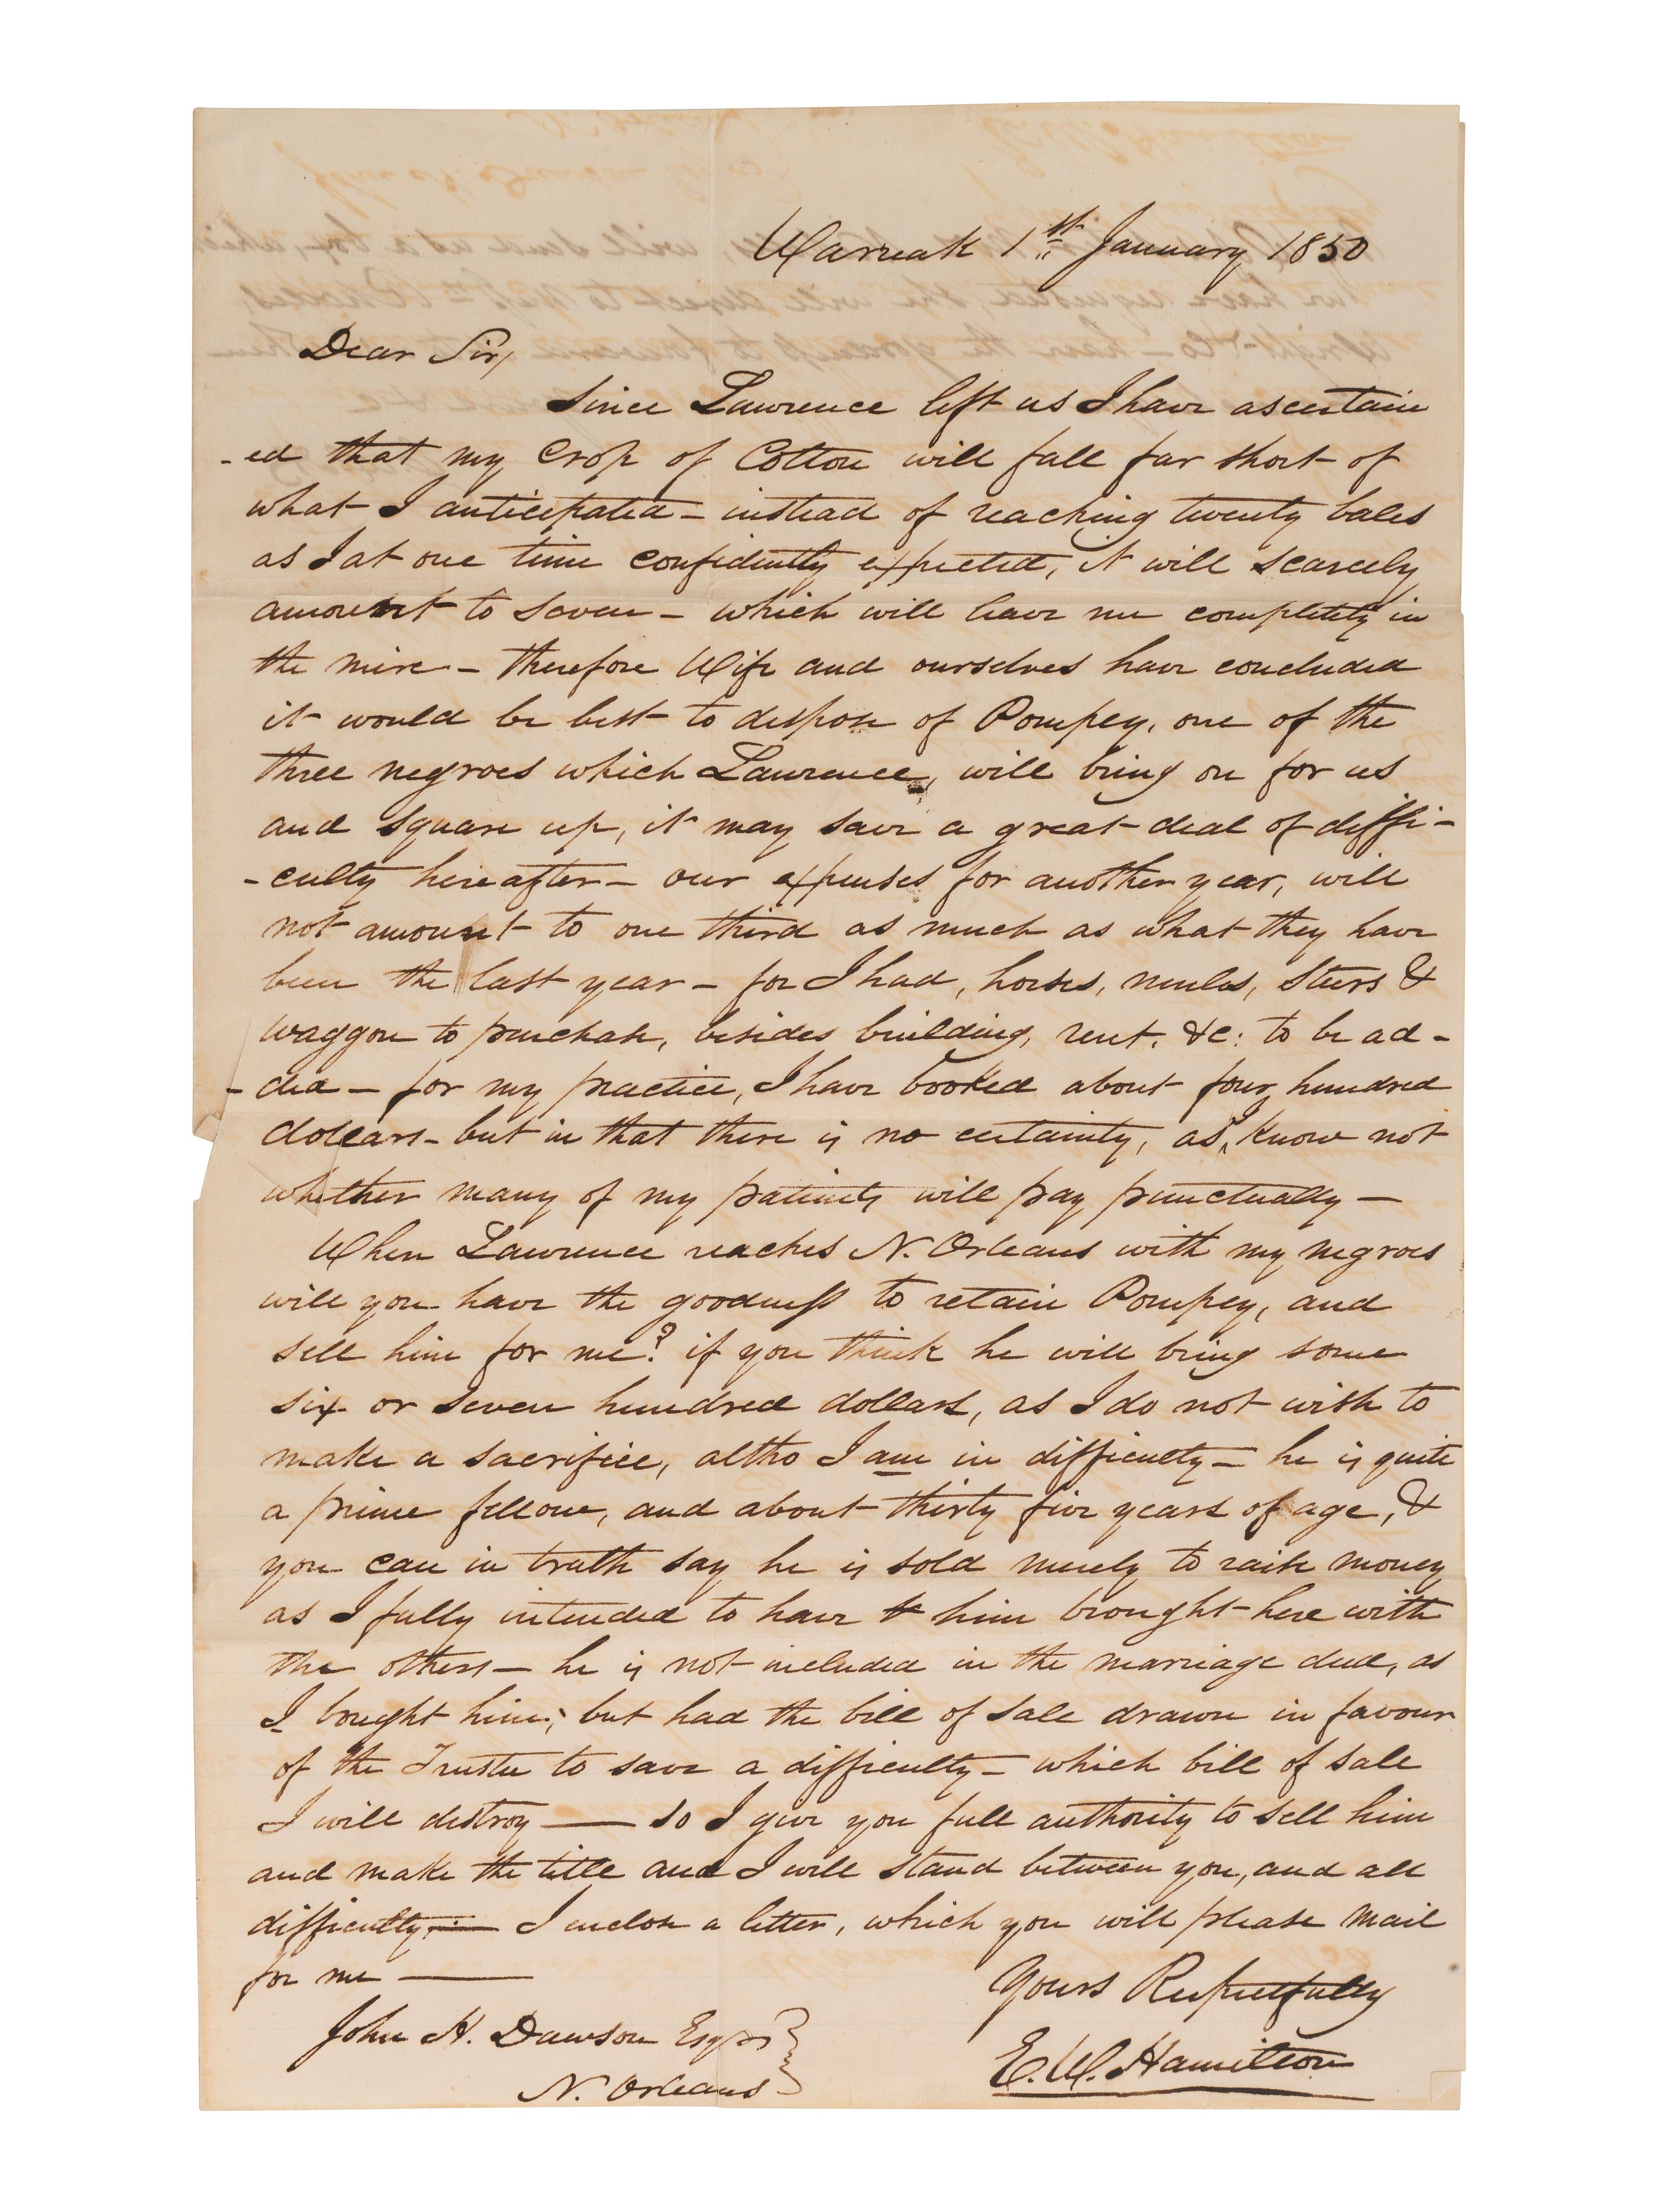 Warreah 1st January 1850
Dear Sir,
Since Lawrence left us I have ascertain
-ed that my Crop of Cotton will fall far short of
what I anticipated - instead of reaching twenty bales
as I at one time confidently expected, it will scarcely
amount to seven - which will leave me completely in
the mire - therefore Wife and ourselves have concluded
it would be best to dispose of Pompey, one of the
three negroes which Lawrence, will bring on for us
and square up, it may save a great deal of diffi-
-culty hereafter - our expenses for another year, will
not amount to one third as much as what they have
been the last year - for I had, horses, mules, Steers &
waggon to purchase, besides building, rent, &c: to be ad-
-ded - for my practice, I have booked about four hundred
dollars - but in that there is no certainty, as I know not
whether many of my patients will pay punctually -
When Lawrence reaches N. Orleans with my negroes
will you have the goodness to retain Pompey, and
sell him for me? if you think he will bring some
six or seven hundred dollars, as I do not wish to
make a sacrifice, altho I am in difficulty - he is quite
a prime fellow, and about thirty five years of age, &
you can in truth say he is sold merely to raise money
as I fully intended to have him brought here with
the others - he is not included in the marriage deed, as
I bought him; but had the bill of sale drawn in favour
of the Trustee to save a difficulty - which bill of sale
I will destroy — so I give you full authority to sell him
and make the title and I will stand between you, and all
difficulty — I enclose a letter, which you will please mail
for me —
Yours Respectfully
John H. Dawson Esqr
E. W. Hamilton
N. Orleans